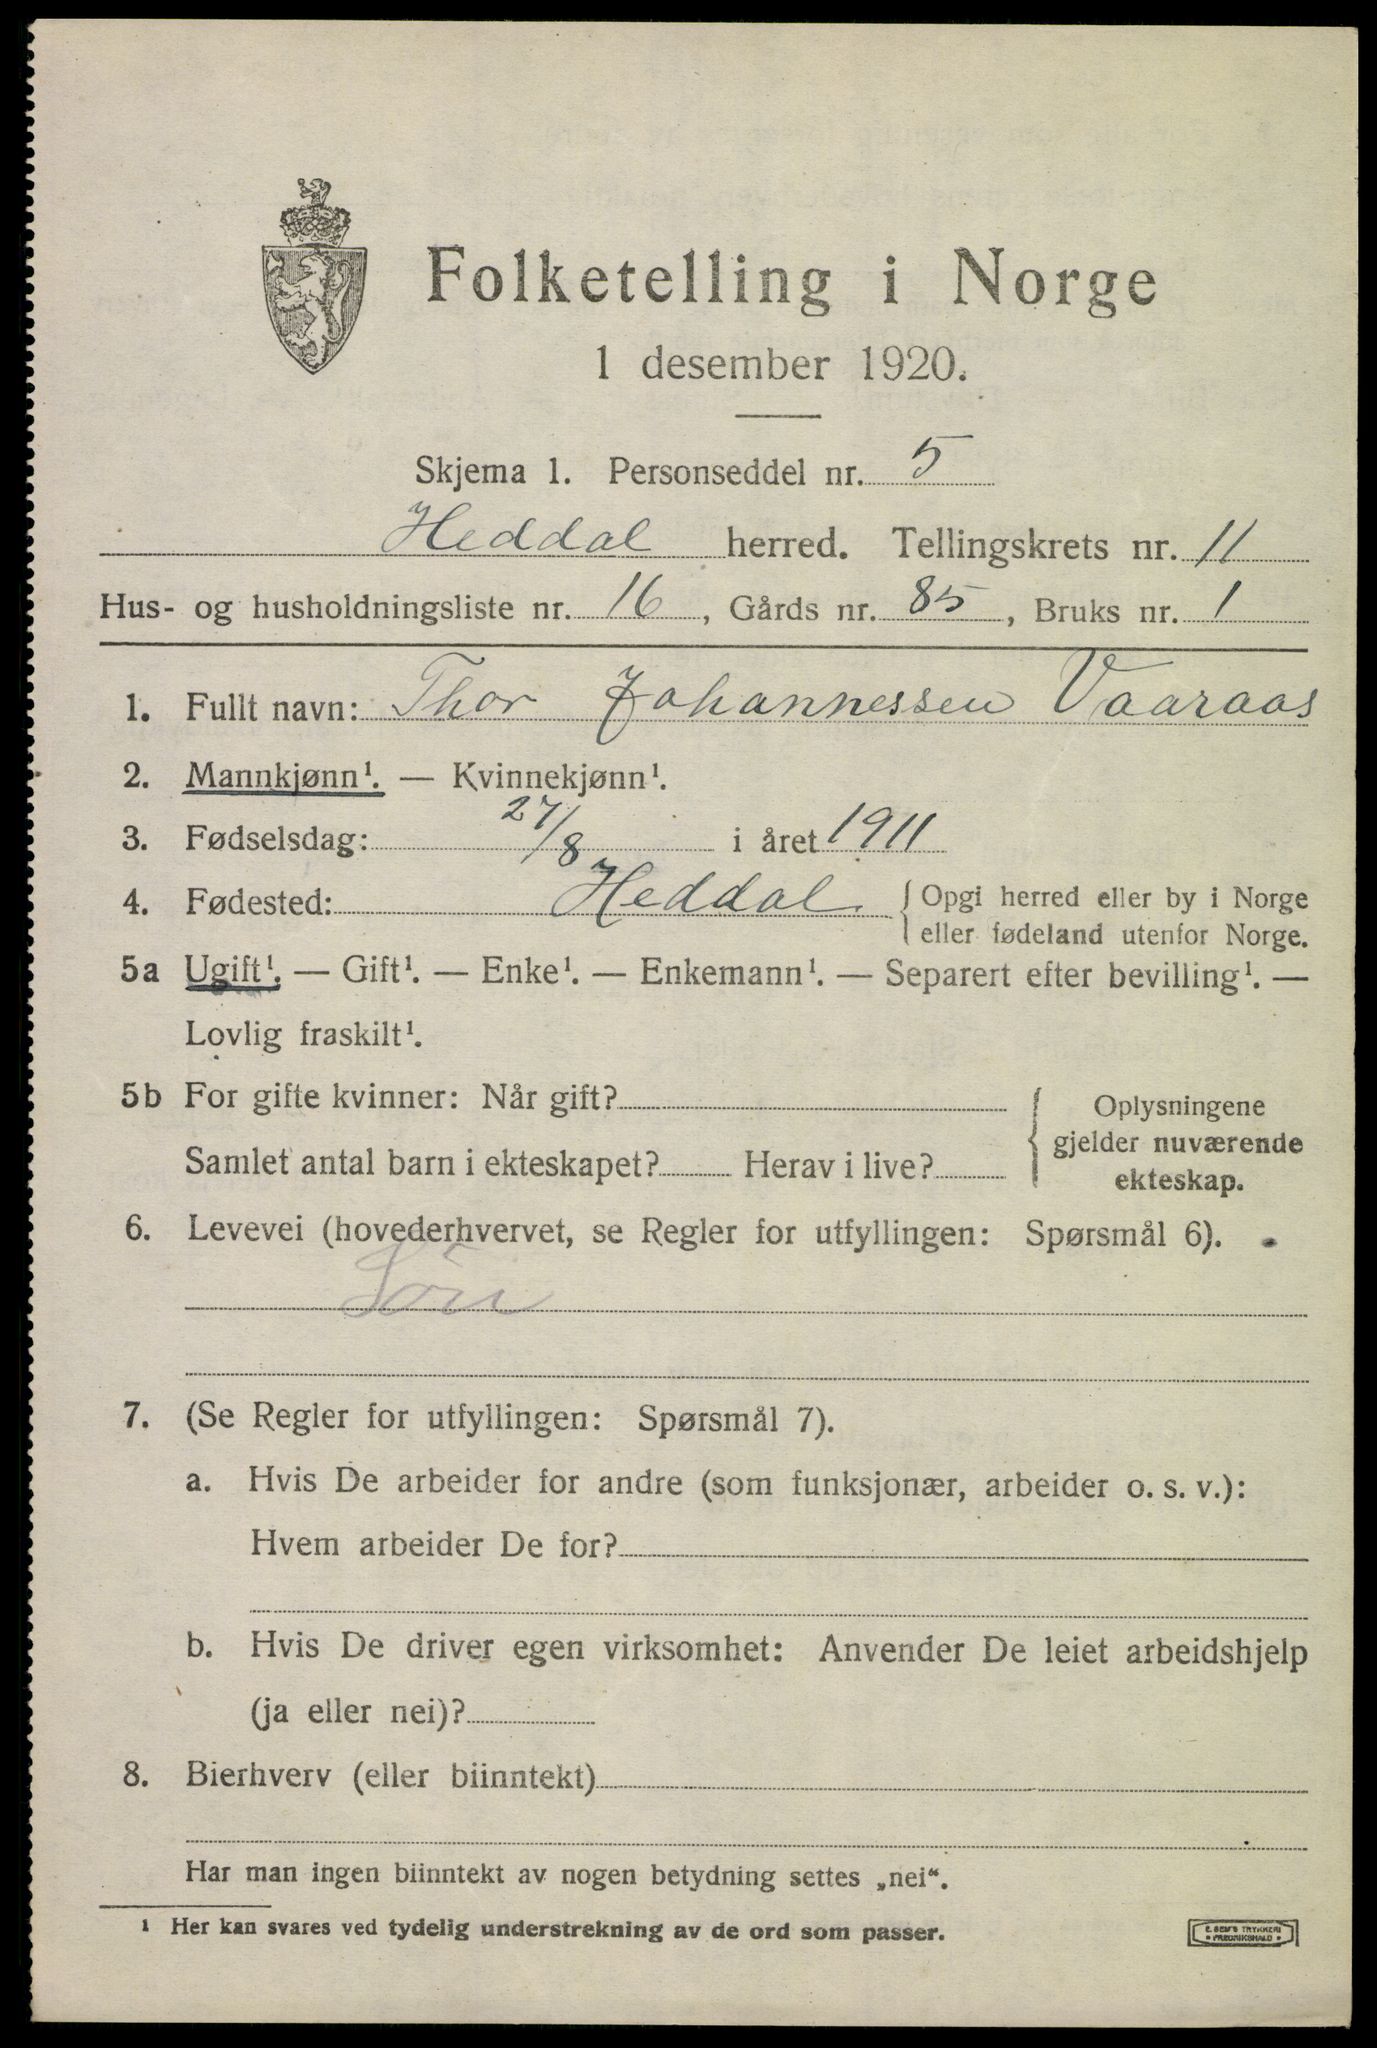 Folketelling i Norge
1 desember 1920.
Skjema 1. Personseddel nr. 5
Heddal herred. Tellingskrets nr. 11
Hus- og husholdningsliste nr. 16, Gårds nr. 85, Bruks nr. 1
1. Fullt navn: Thor Johannessen Vaaraas
2. Mannkjønn¹. — Kvinnekjønn¹.
3. Fødselsdag: 27/8 i året 1911
4. Fødested: Heddal { Opgi herred eller by i Norge
eller fødeland utenfor Norge.
5a Ugift¹. — Gift¹. — Enke¹. — Enkemann¹. — Separert efter bevilling¹. —
Lovlig fraskilt¹.
5b For gifte kvinner: Når gift? { Oplysningene
gjelder nuværende
Samlet antal barn i ekteskapet? Herav i live?
ekteskap.
6. Levevei (hovederhvervet, se Regler for utfyllingen: Spørsmål 6).
7. (Se Regler for utfyllingen: Spørsmål 7).
a. Hvis De arbeider for andre (som funksjonær, arbeider o. s. v.):
Hvem arbeider De for?
b. Hvis De driver egen virksomhet: Anvender De leiet arbeidshjelp
(ja eller nei)?
8. Bierhverv (eller biinntekt)
Har man ingen biinntekt av nogen betydning settes „nei“.
¹ Her kan svares ved tydelig understrekning av de ord som passer.
E. SEM'S TRYKKERI
FREDRIKSHALD